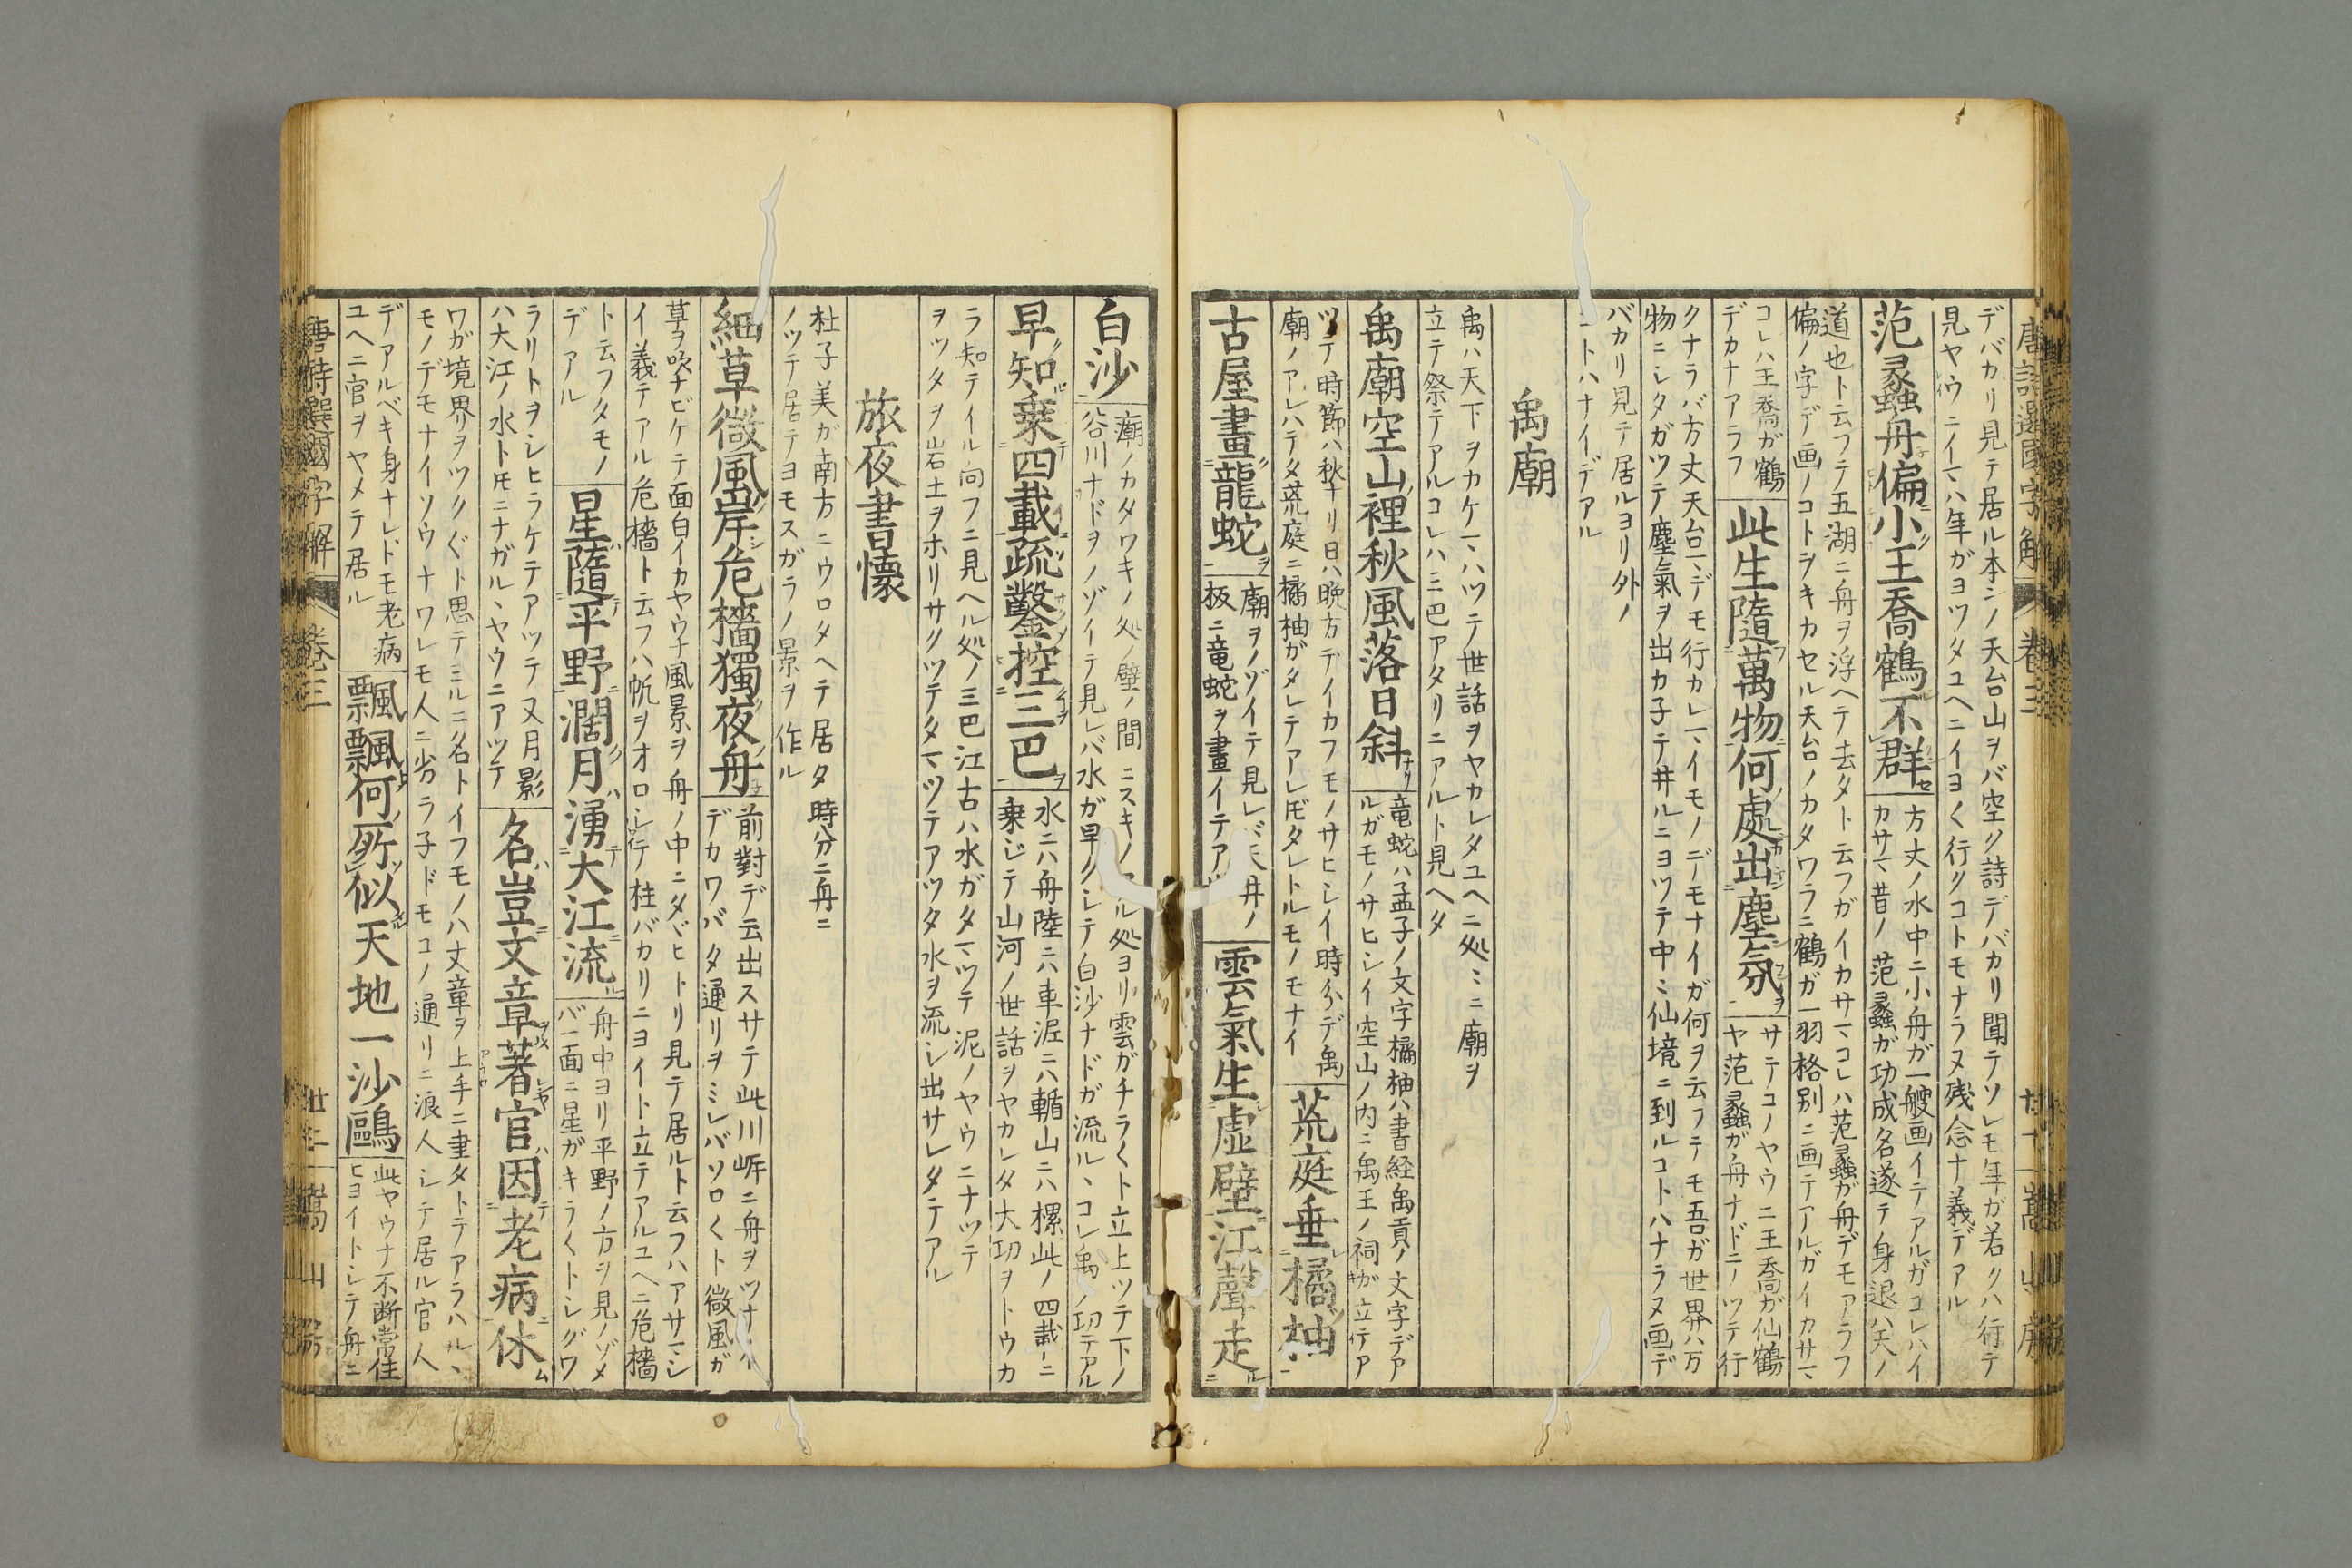 唐詩選國字解 卷三 嵩山房
デバカリ見テ居ル本ニノ天台山ヲバ空ク詩デバカリ聞テソレモ年ガ若クハ行テ
見ヤウニイマハ年ガヨツタユヘニイヨ〱行クコトモナラヌ残念ナ義デアル
范蠡舟偏小王喬鶴不群
方丈ノ水中ニ小舟ガ一艘画イテアルガコレハイ
カサマ昔ノ范蠡ガ功成名遂テ身退ハ天ノ
道也ト云フテ五湖ニ舟ヲ浮ヘテ去タト云フガイカサマコレハ范蠡ガ舟デモアラフ
偏ノ字デ画ノコトヲキカセル天台ノカタワラニ鶴ガ一羽格別ニ画テアルガイカサマ
コレハ王喬ガ鶴
デカナアラフ
此生隨萬物何處出塵氛
サテコノヤウニ王喬ガ仙鶴
ヤ范蠡ガ舟ナドニノツテ行
クナラバ方丈天台マデモ行カレマイモノデモナイガ何ヲ云フテモ吾ガ世界ハ万
物ニシタガツテ塵氣ヲ出カ子テ井ルニヨツテ中〻仙境ニ到ルコトハナラヌ画デ
バカリ見テ居ルヨリ外ノ
コトハナイデアル
禹廟
禹ハ天下ヲカケマハツテ世話ヲヤカレタユヘニ処〻ニ廟ヲ
立テ祭テアルコレハ三巴アタリニアルト見ヘタ
禹廟空山裡秋風落日斜
竜蛇ハ孟子ノ文字橘柚ハ書経禹貢ノ文字デア
ルガモノサヒシイ空山ノ内ニ禹王ノ祠ガ立テア
ツテ時節ハ秋ナリ日ハ晩方デイカフモノサヒシイ時分デ禹
廟ノアレハテタ荒庭ニ橘柚ガタレテアレ𪜈タレトルモノモナイ
荒庭垂橘柚
古屋畫龍蛇
廟ヲノゾイテ見レバ天井ノ
板ニ竜蛇ヲ畫イテアル
雲氣生虛壁江聲走
白沙
廟ノカタワキノ処ノ壁ノ間ニスキノアル処ヨリ雲ガチラ〱ト立上ツテ下ノ
谷川ナドヲノゾイテ見レバ水ガ早クシテ白沙ナドガ流ルヽコレ禹ノ功テアル
早知乗四載疏鑿控三巴
水ニハ舟陸ニハ車泥ニハ輴山ニハ樏此ノ四載ニ
乗ジテ山河ノ世話ヲヤカレタ大功ヲトウカ
ラ知テイル向フニ見ヘル処ノ三巴江古ハ水ガタマツテ泥ノヤウニナツテ
ヲツタヲ岩土ヲホリサクツテタマツテアツタ水ヲ流シ出サレタテアル
旅夜書懐
杜子美ガ南方ニウロタヘテ居タ時分ニ舟ニ
ノツテ居テヨモスガラノ景ヲ作ル
細草微風岸危檣獨夜舟
前對デ云出スサテ此川岸ニ舟ヲツナイ
デカワバタ通リヲミレバソロ〱ト微風ガ
草ヲ吹ナビケテ面白イカヤウナ風景ヲ舟ノ中ニタヾヒトリ見テ居ルト云フハアサマシ
イ義テアル危檣ト云フハ帆ヲオロシテ柱バカリニヨイト立テアルユヘニ危檣
ト云フタモノ
デアル
星隨平野濶月湧大江流
舟中ヨリ平野ノ方ヲ見ノゾメ
バ一面ニ星ガキラ〱トシグワ
ラリトヲシヒラケテアツテ又月影
ハ大江ノ水ト𪜈ニナガルヽヤウニアツテ
名豈文章著官因老病休
ワガ境界ヲツク〲ト思テミルニ名トイフモノハ文章ヲ上手ニ書タトテアラハルヽ
モノデモナイソウナワレモ人ニ劣ラ子ドモコノ通リニ浪人シテ居ル官人
デアルベキ身ナレドモ老病
ユヘニ官ヲヤメテ居ル
飄飄何所似天地一沙鷗
此ヤウナ不断常住
ヒヨイトシテ舟ニ
唐詩選國字解 卷三 嵩山房